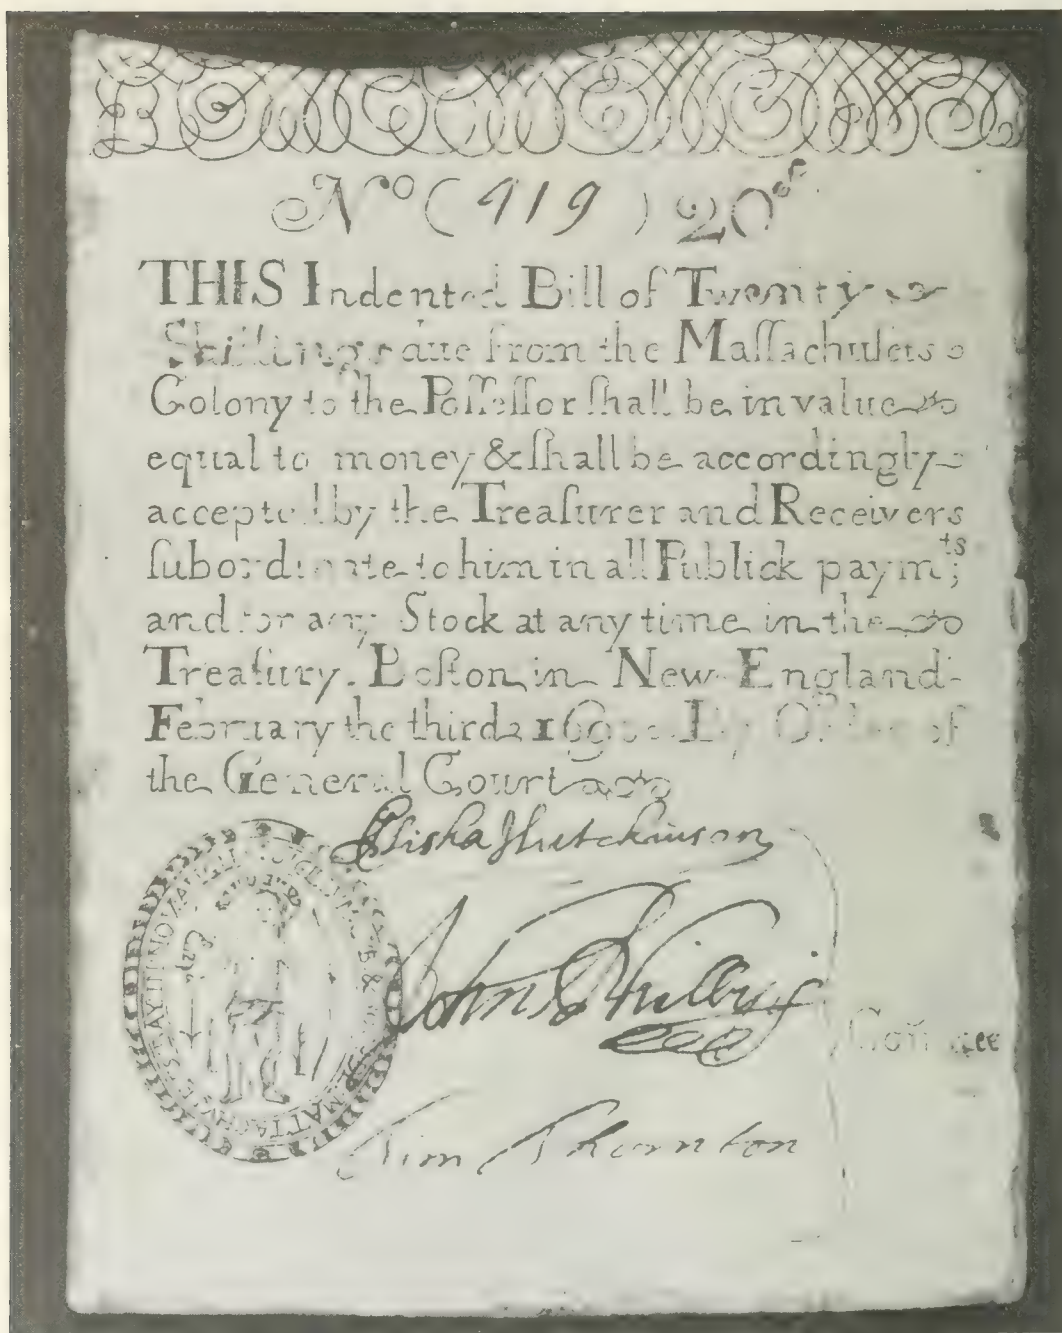 No (919) 20s
THIS Indented Bill of Twenty
Shillings due from the Maſſachuſets
Colony to the Poſſeſſor ſhall be in value
equal to money & ſhall be accordingly
accepted by the Treaſurer and Receivers
ſubordinate to him in all Publick paymts;
and for any Stock at any time in the
Treaſury. Boſton in New England
February the third 1690. By Order of
the General Court
Elisha Hutchinson
John Phillips
Com tee
Tim Thornton
SIGILLUM MATTACHUSETS BAY IN NOV ANGL